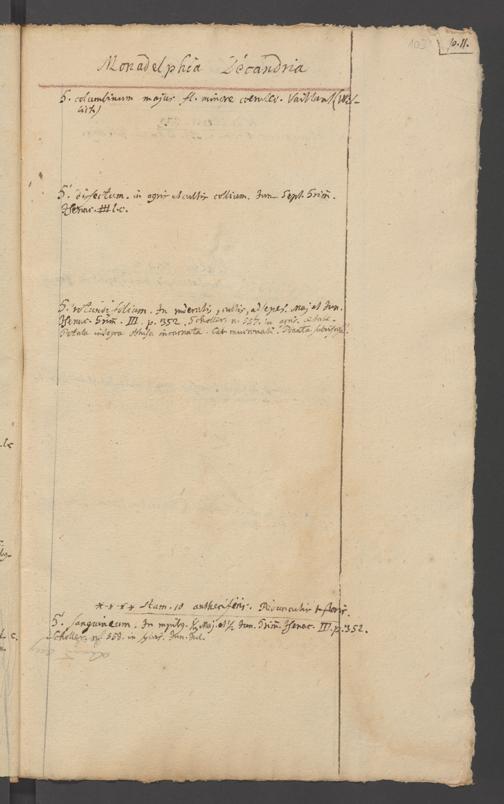 103
p. 11.
Monadelphia Decandria
G. columbinum majus. fl. minore coeruleo. Vaillant
G. dissectum. in agris et cultis collium. Jun. Sept. Grim.
Isenac. l.c.
G. rotundifolium. In ruderatis, cultis, ad sepes. Maj. et Jun.
Isenac. Grim. III. p. 352. Scholler. n. in
Petala integra incarnata. Cal. mucronati.
**** Stam. 10 antheriferis. Pedunculis 1 floris.
G. sanguineum. In Maj. et Jun. Grim. Isenac. III. p. 352.
Scholler. n. 558. in Jun. Jul.